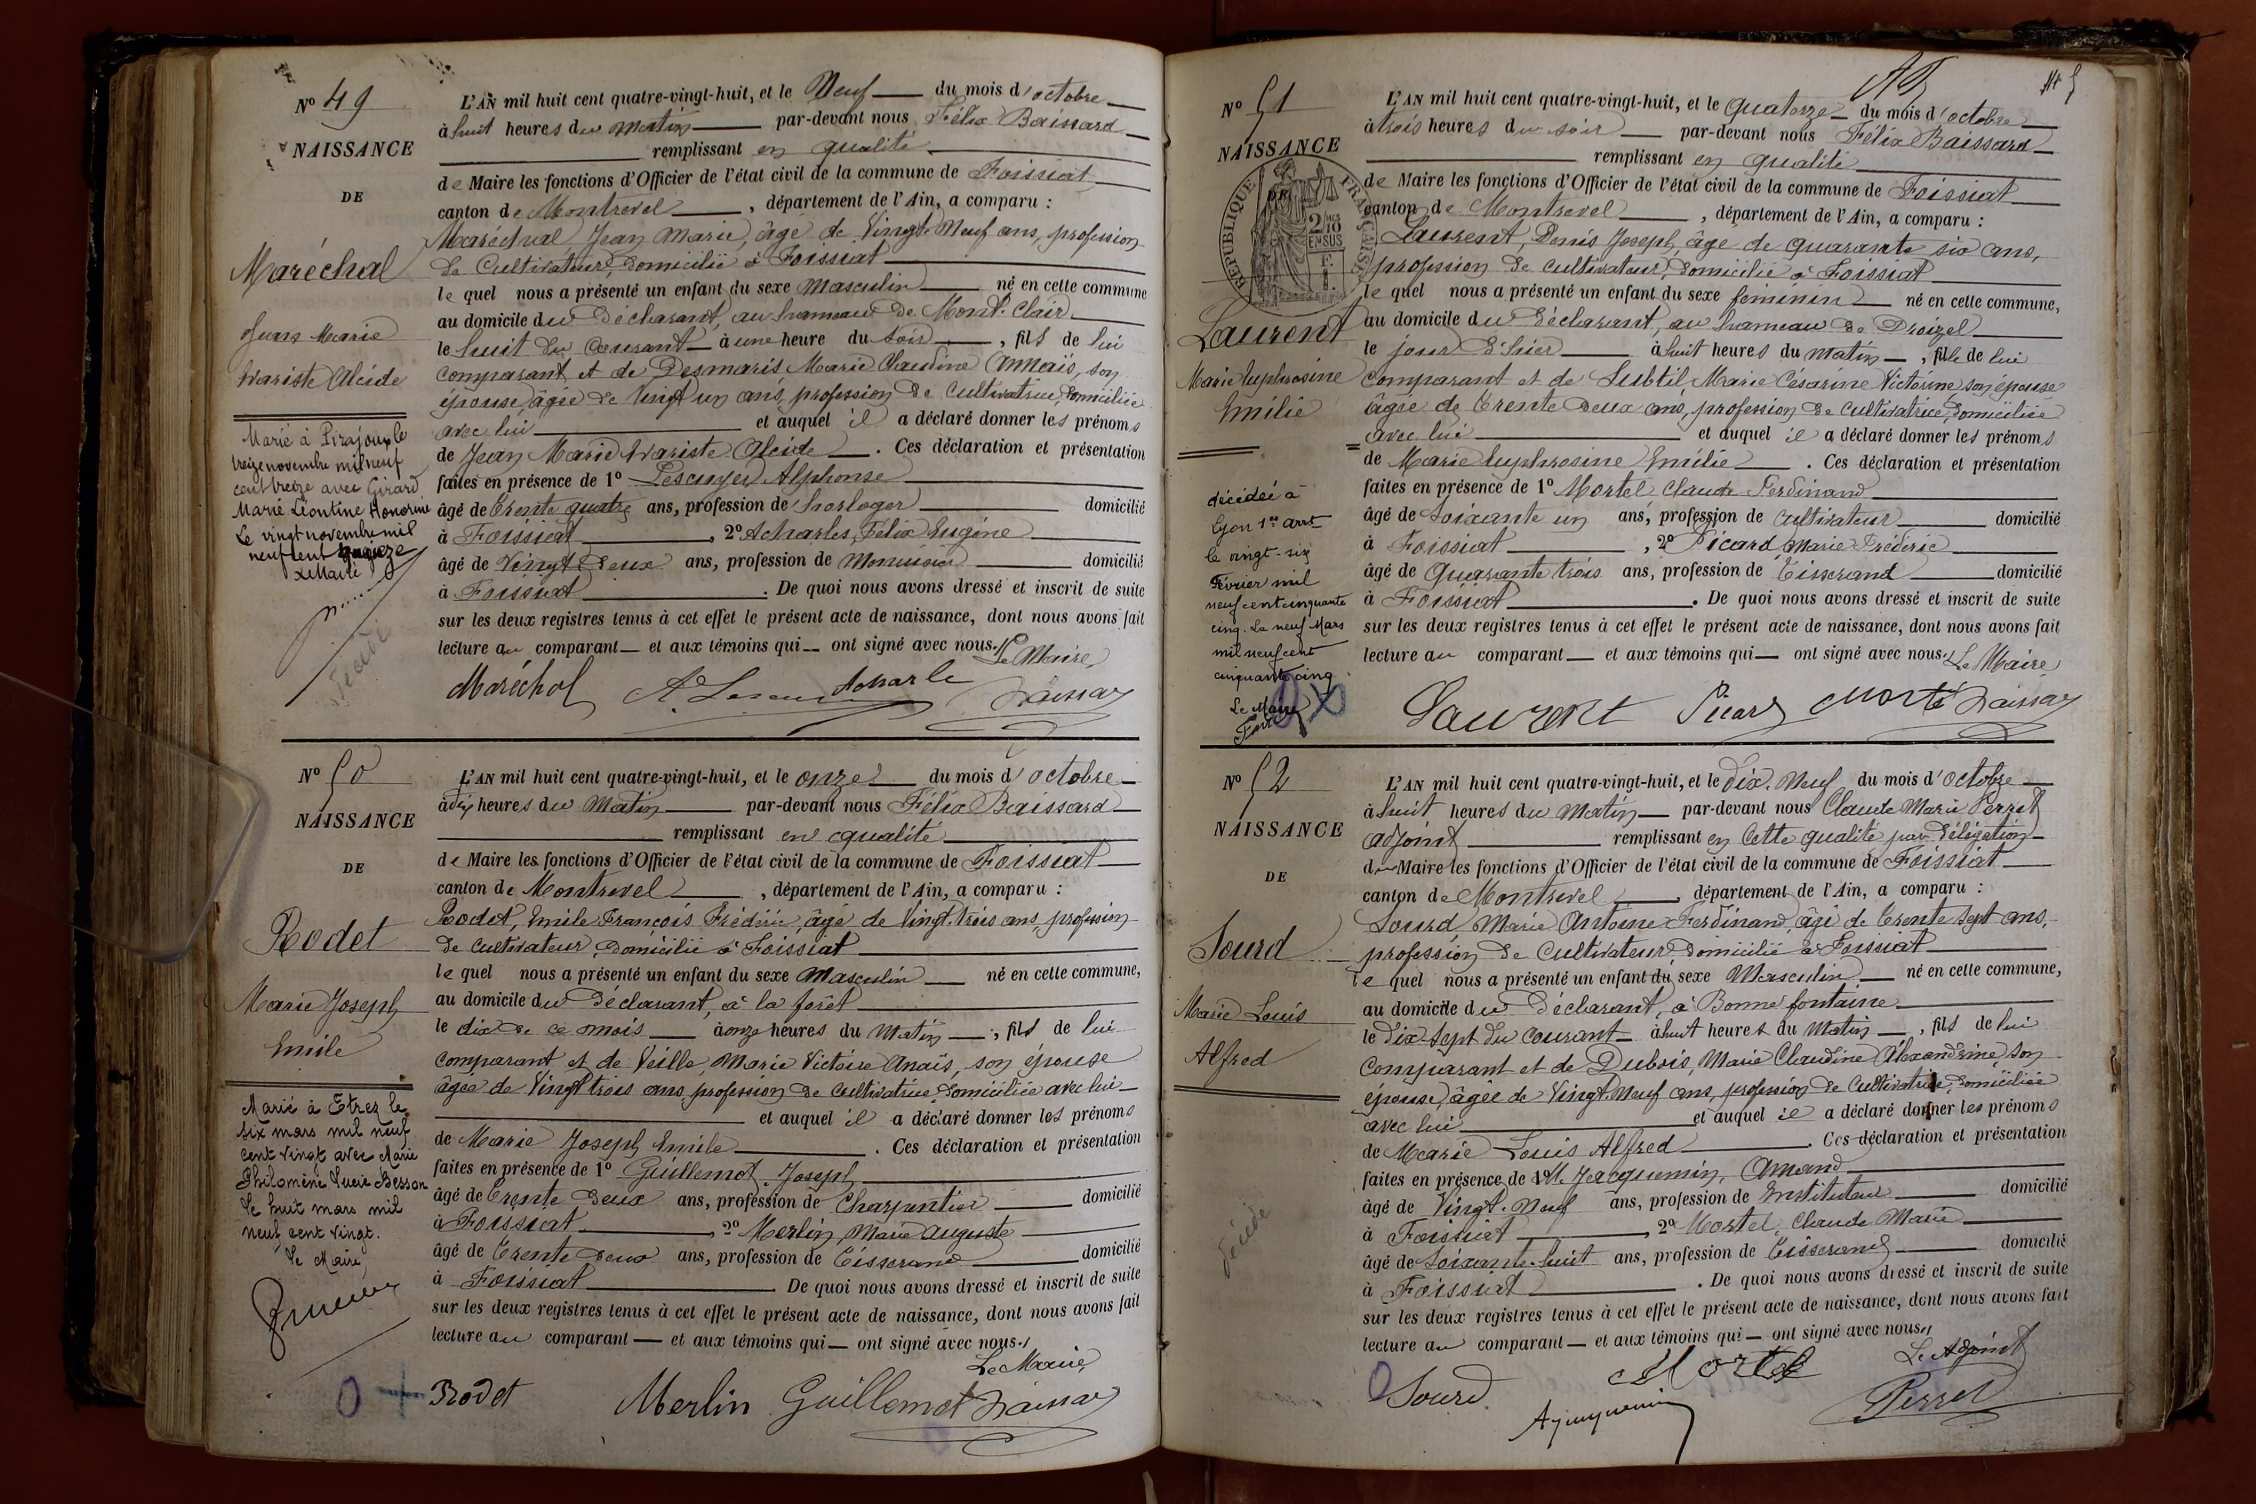 N° 49
NAISSANCE
DE
Maréchal
Jean Marie
Evariste Alcide
Marié à Pirajoux le
treize novembre mil neuf
cent treize avec Girard
Marie Léontine Honorine
Le vingt novembre mil
neuf cent
Le Maire
L'AN mil huit cent quatre-vingt-huit, et le Neuf du mois d'octobre
à huit heures du Matin par-devant nous Félix Baissard
remplissant en qualité
de Maire les fonctions d'Officier de l'état civil de la commune de Foissiat
canton de Montrevel, département de l'Ain, a comparu :
Maréchal Jean Marie, âgé de Vingt Neuf ans, profession
de Cultivateur, domicilié à Foissiat
le quel nous a présenté un enfant du sexe Masculin né en cette commune
au domicile du Déclarant, au hameau de Mont-Clair
le huit du Courant à une heure du Soir, fils de lui
comparant et de Desmaris Marie Claudine Annaïs, son
épouse âgée de Vingt un ans, profession de Cultivatrice, domiciliée
avec lui et auquel il a déclaré donner les prénoms
de Jean Marie Evariste Alcide. Ces déclaration et présentation
faites en présence de 1° Lescuyer Alphonse
âgé de Trente quatre ans, profession de horloger domicilié
à Foissiat, 2° Acharles, Félix Eugène
âgé de Vingt Deux ans, profession de Menuisier domicilié
à Foissiat. De quoi nous avons dressé et inscrit de suite
sur les deux registres tenus à cet effet le présent acte de naissance, dont nous avons fait
lecture au comparant et aux témoins qui ont signé avec nous.
Le Maire,
Maréchal Acharle
N° 50
NAISSANCE
DE
Rodet
Marie Joseph
Emile
Marié à Etrez le
six mars mil neuf
cent vingt avec Marie
Philomène Lucie Besson
Le huit mars mil
neuf cent vingt.
Le Maire,
L'AN mil huit cent quatre-vingt-huit, et le onze du mois d'octobre
à dix heures du Matin par-devant nous Félix Baissard
remplissant en qualité
de Maire les fonctions d'Officier de l'état civil de la commune de Foissiat
canton de Montrevel, département de l'Ain, a comparu :
Rodet, Emile François Frédéric, âgé de Vingt trois ans, profession
de cultivateur, domicilié à Foissiat
le quel nous a présenté un enfant du sexe Masculin né en cette commune,
au domicile du Déclarant, à la forêt
le dix de ce mois à onze heures du Matin, fils de lui
comparant et de Veille, Marie Victoire Anaïs, son épouse
âgée de Vingt trois ans, profession de cultivatrice, domiciliée avec lui
et auquel il a déclaré donner les prénoms
de Marie Joseph Emile. Ces déclaration et présentation
faites en présence de 1° Guillemot, Joseph
âgé de Trente Deux ans, profession de Charpentier domicilié
à Foissiat, 2° Merlin, Marie Auguste
âgé de Trente Deux ans, profession de Tisserand domicilié
à Foissiat. De quoi nous avons dressé et inscrit de suite
sur les deux registres tenus à cet effet le présent acte de naissance, dont nous avons fait
lecture au comparant et aux témoins qui ont signé avec nous.
Le Maire,
Rodet Merlin Guillemot
N° 51
NAISSANCE
DE
RÉPUBLIQUE FRANÇAISE
2/10
EN SUS
Laurent
Marie Euphrosine
Emilie
décédée à
Lyon 1er arrt
le vingt-six
Février mil
neuf cent cinquante
cinq. Le neuf Mars
mil neuf cent
cinquante cinq
Le Maire
L'AN mil huit cent quatre-vingt-huit, et le Quatorze du mois d'octobre
à trois heures du soir par-devant nous Félix Baissard
remplissant en qualité
de Maire les fonctions d'Officier de l'état civil de la commune de Foissiat
canton de Montrevel, département de l'Ain, a comparu :
Laurent, Denis Joseph, âgé de quarante six ans,
profession de cultivateur, domicilié à Foissiat
le quel nous a présenté un enfant du sexe féminin né en cette commune,
au domicile du Déclarant, au hameau de Droizel
le jour d'hier à huit heures du Matin, fille de lui
comparant et de Subtil Marie Césarine Victorine son épouse
âgée de Trente deux ans, profession de cultivatrice, domiciliée
avec lui et auquel il a déclaré donner les prénoms
de Marie Euphrosine Emilie. Ces déclaration et présentation
faites en présence de 1° Mortel Claude Ferdinand
âgé de Soixante un ans, profession de cultivateur domicilié
à Foissiat, 2° Picard, Marie Fréderic
âgé de Quarante trois ans, profession de Tisserand domicilié
à Foissiat. De quoi nous avons dressé et inscrit de suite
sur les deux registres tenus à cet effet le présent acte de naissance, dont nous avons fait
lecture au comparant et aux témoins qui ont signé avec nous. Le Maire
Laurent Picard
N° 52
NAISSANCE
DE
Sourd
Marie Louis
Alfred
décédé
L'AN mil huit cent quatre-vingt-huit, et le Dix-Neuf du mois d'octobre
à huit heures du Matin par-devant nous Claude Marie Perret
adjoint remplissant en cette qualité par délégation
du Maire les fonctions d'Officier de l'état civil de la commune de Foissiat
canton de Montrevel, département de l'Ain, a comparu :
Sourd, Marie Antoine Ferdinand, âgé de Trente Sept ans,
profession de Cultivateur, domicilié à Foissiat
le quel nous a présenté un enfant du sexe Masculin né en cette commune,
au domicile du Déclarant, à Bonne fontaine
le Dix-Sept du courant à huit heures du Matin, fils de lui
comparant et de Dubois, Marie Claudine Alexandrine, son
épouse, âgée de Vingt Neuf ans, profession de Cultivatrice, domiciliée
avec lui et auquel il a déclaré donner les prénoms
de Marie Louis Alfred. Ces déclaration et présentation
faites en présence de 1° M. Jacquemin, Amand
âgé de Vingt-Neuf ans, profession de Instituteur domicilié
à Foissiat, 2° Mortel, Claude Marie
âgé de Soixante-huit ans, profession de Tisserand domicilié
à Foissiat. De quoi nous avons dressé et inscrit de suite
sur les deux registres tenus à cet effet le présent acte de naissance, dont nous avons fait
lecture au comparant et aux témoins qui ont signé avec nous.
Le Adjoint
Sourd Mortel
Perret